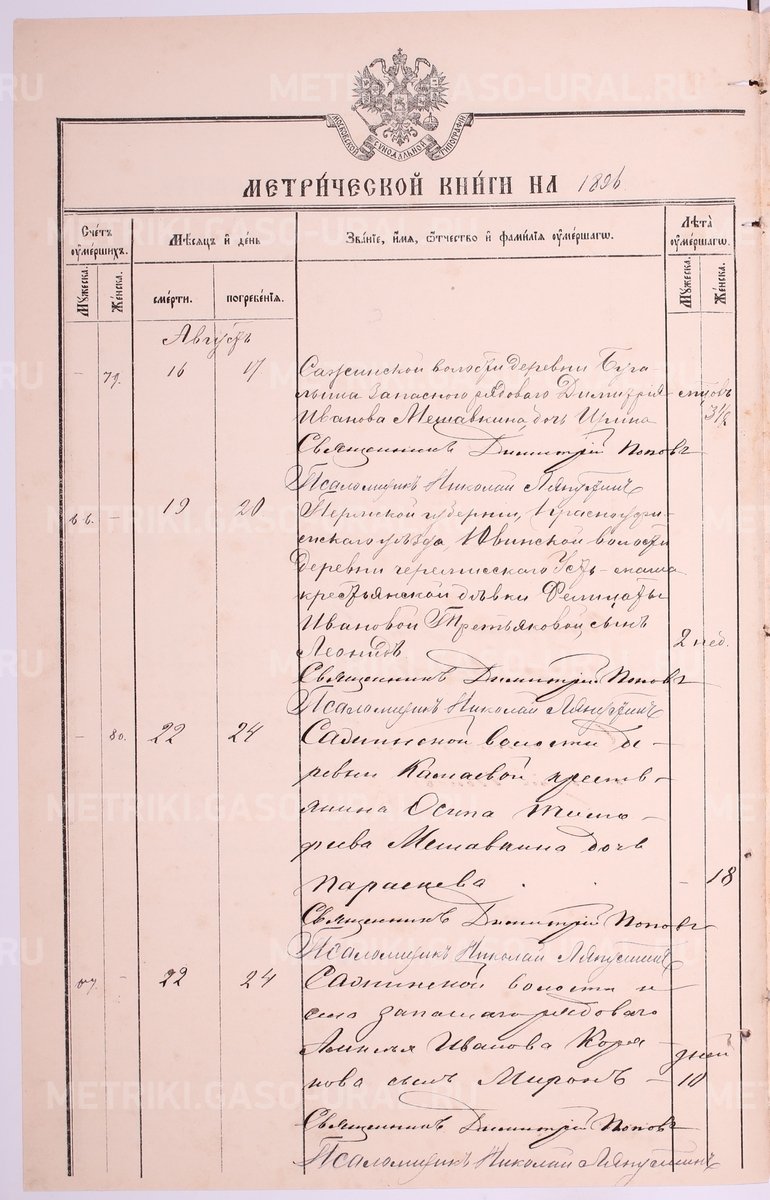 МОСКОВСКОЙ СѴНОДАЛЬНОЙ ТИПОГРАФІИ
МЕТРИ́ЧЕСКОЙ КНИ́ГИ НА 1896
Сче́тъ ᲂу҆ме́ршихъ.
Мꙋ́жеска. Же́нска.
Мѣ́сяцъ и҆ де́нь
сме́рти. погребе́нїѧ.
Зва́нїе, и҆́мѧ, ѻ҆́тчество и҆ фами́лїѧ ᲂу҆ме́ршагѡ.
Лѣ́та ᲂу҆ме́ршагѡ.
Мꙋ́жеска. Же́нска.
Августъ
- 79. 16 17 Сажинской волости деревни Буга-
лыша запаснаго рядоваго Димитрія
Иванова Мешавкина дочь Ирина
3½
Священникъ Димитрій Поповъ
Псаломщикъ Николай Ляпустинъ
66. - 19 20 Пермской губерніи, Красноуфи-
мскаго уѣзда Ювинской волости
деревни черемисскаго Усть-маша
крестьянской дѣвки Фелицаты
Ивановой Третьяковой, сынъ
Леонидъ 2 нед.
Священникъ Димитрій Поповъ
Псаломщикъ Николай Ляпустинъ
- 80. 22 24 Сажинской волости де-
ревни Камаевой крестья-
янина Осипа Тимо-
феева Мешавкина дочь
Параскева - 18
Священникъ Димитрій Поповъ
Псаломщикъ Николай Ляпустинъ
67 - 22 24 Сажинской волости и
села запаснаго рядоваго
Иванова Коря-
кова сынъ Миронъ - дней 10
Священникъ Димитрій Поповъ
Псаломщикъ Николай Ляпустинъ
METRIKI.GASO-URAL.RU